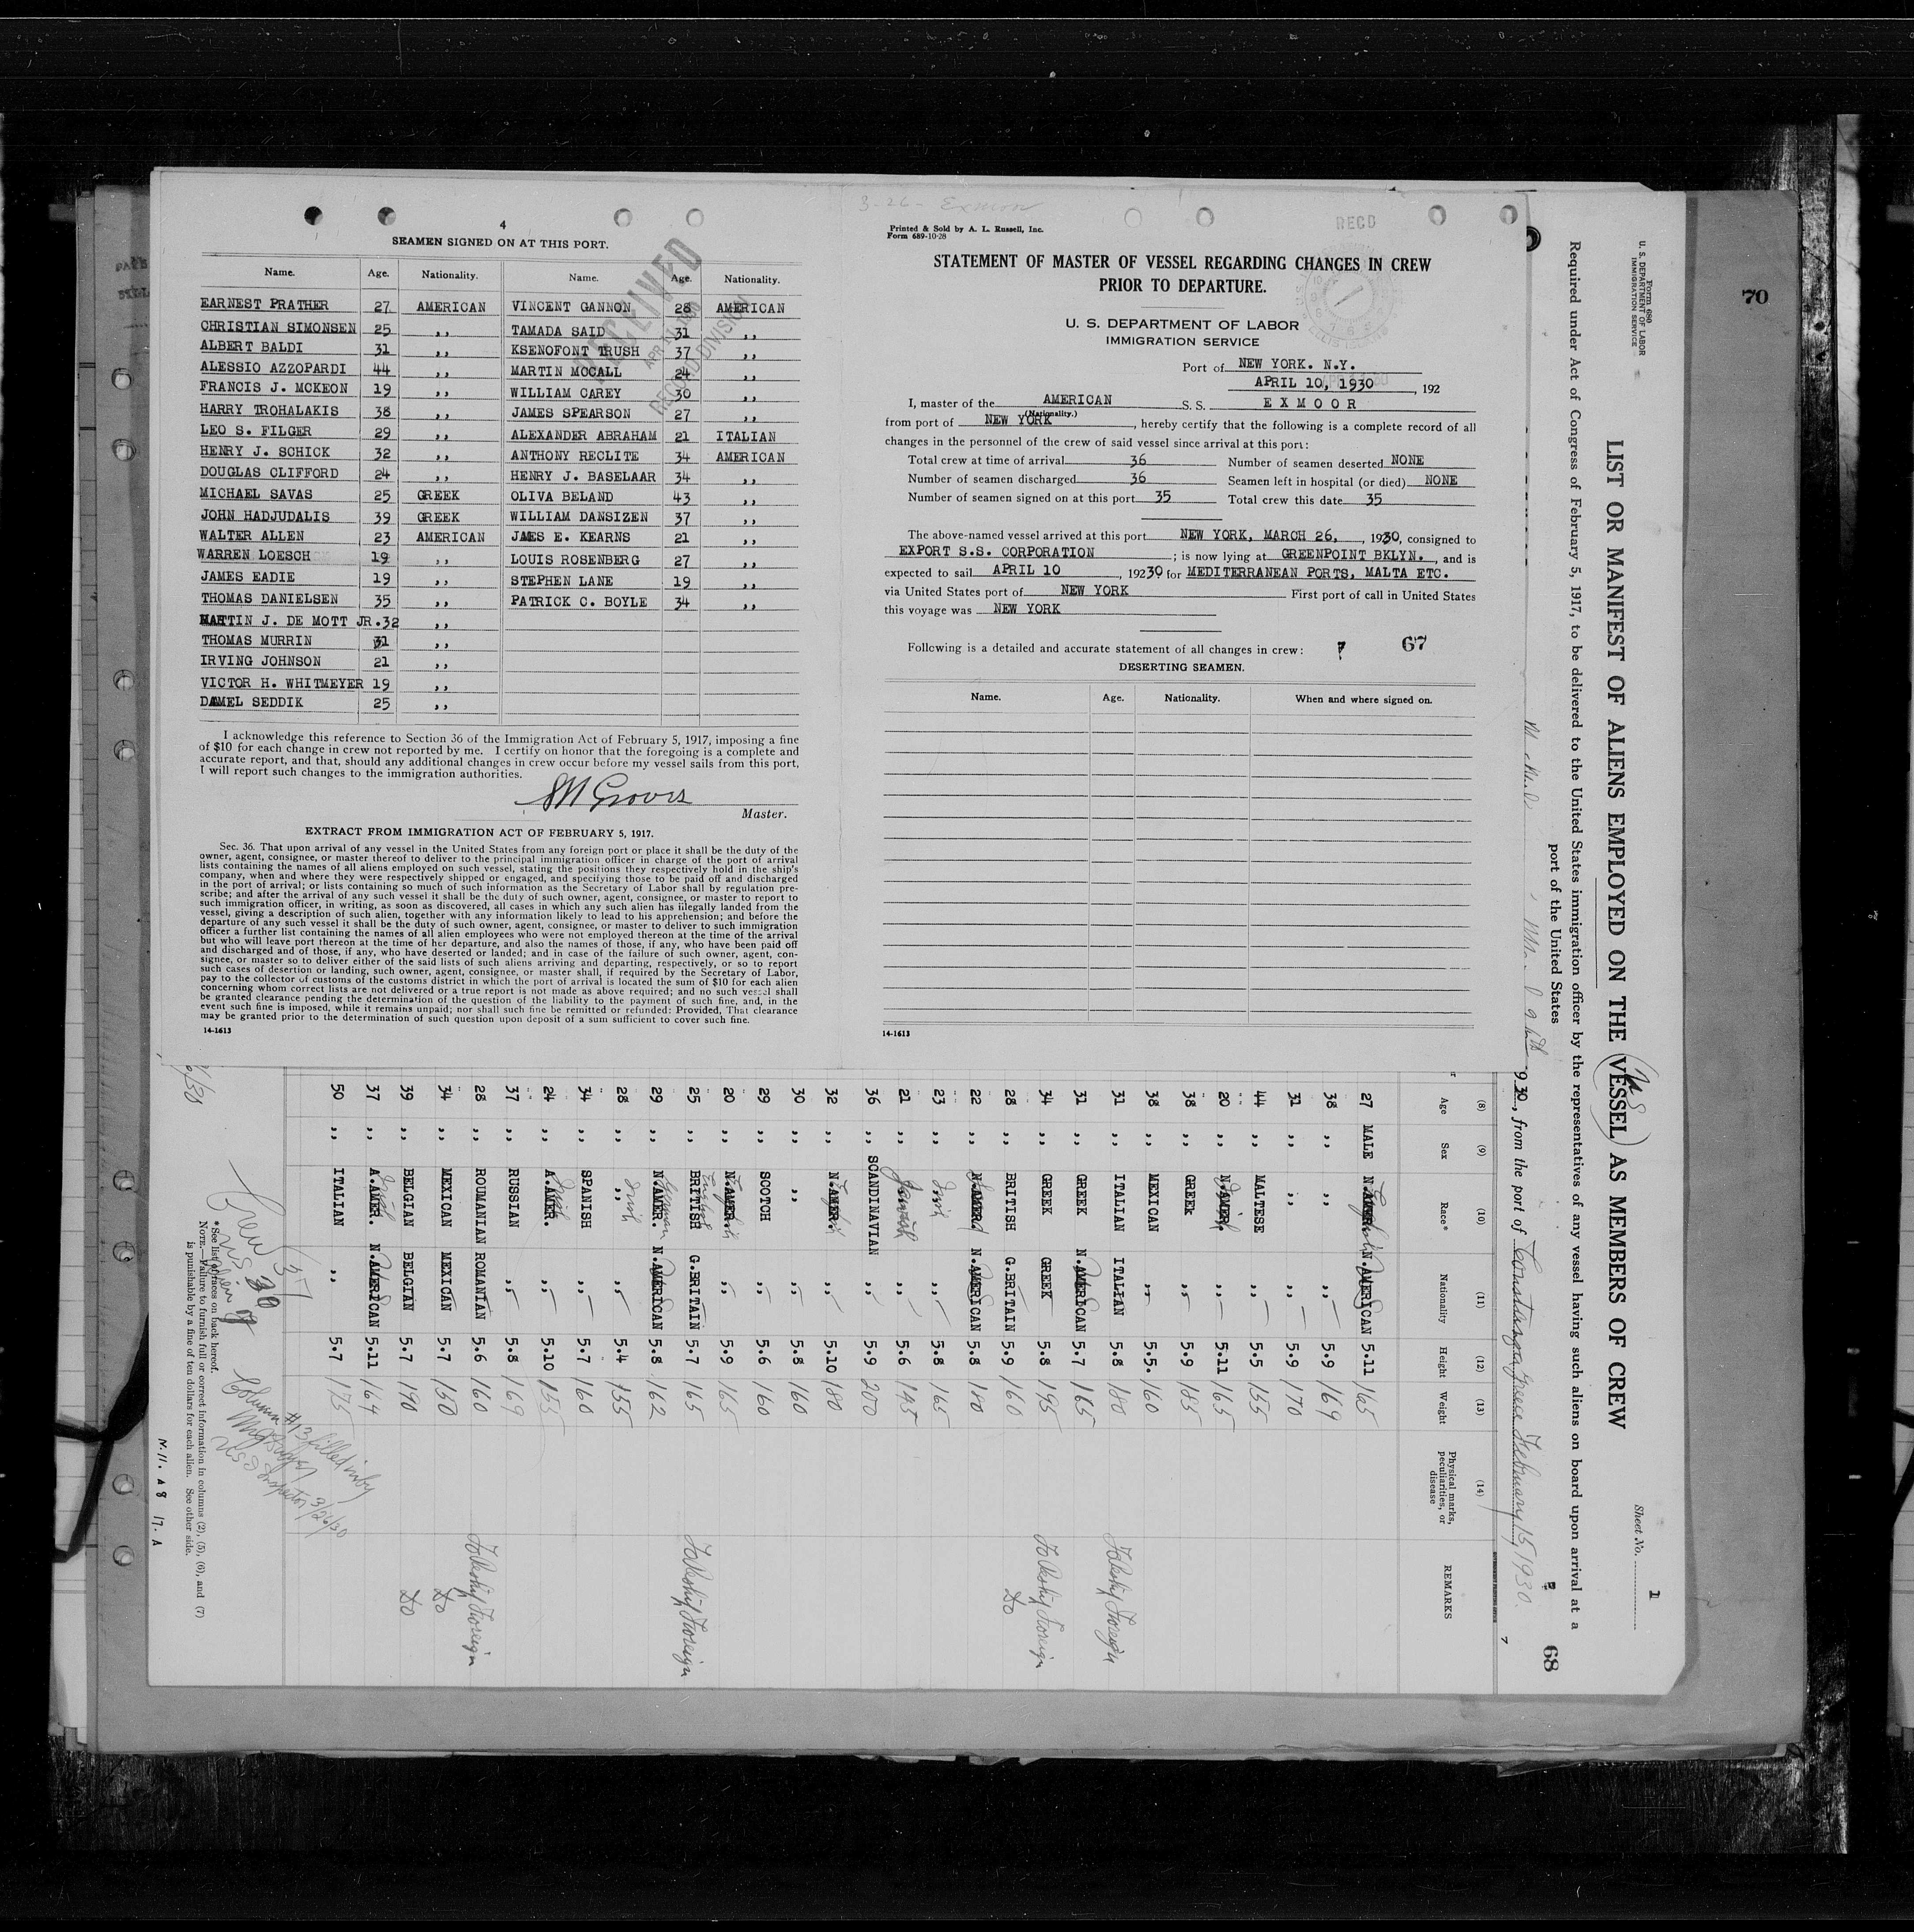 4
SEAMEN SIGNED ON AT THIS PORT.
Name. Age. Nationality. Name. Age. Nationality.
EARNEST PRATHER 27 AMERICAN VINCENT GANNON 28 AMERICAN
CHRISTIAN SIMONSEN 25 ,, TAMADA SAID 31 ,,
ALBERT BALDI 31 ,, KSENOFONT TRUSH 37 ,,
ALESSIO AZZOPARDI 44 ,, MARTIN MCCALL 24 ,,
FRANCIS J. MCKEON 19 ,, WILLIAM CAREY 30 ,,
HARRY TROHALAKIS 38 ,, JAMES SPEARSON 27 ,,
LEO S. FILGER 29 ,, ALEXANDER ABRAHAM 21 ITALIAN
HENRY J. SCHICK 32 ,, ANTHONY RECLITE 34 AMERICAN
DOUGLAS CLIFFORD 24 ,, HENRY J. BASELAAR 34 ,,
MICHAEL SAVAS 25 GREEK OLIVA BELAND 43 ,,
JOHN HADJUDALIS 39 GREEK WILLIAM DANSIZEN 37 ,,
WALTER ALLEN 23 AMERICAN JAMES E. KEARNS 21 ,,
WARREN LOESCH 19 ,, LOUIS ROSENBERG 27 ,,
JAMES EADIE 19 ,, STEPHEN LANE 19 ,,
THOMAS DANIELSEN 35 ,, PATRICK C. BOYLE 34 ,,
MARTIN J. DE MOTT JR. 32 ,,
THOMAS MURRIN 31 ,,
IRVING JOHNSON 21 ,,
VICTOR H. WHITMEYER 19 ,,
DAMEL SEDDIK 25 ,,
RECEIVED
RECORD DIVISION
I acknowledge this reference to Section 36 of the Immigration Act of February 5, 1917, imposing a fine
of $10 for each change in crew not reported by me. I certify on honor that the foregoing is a complete and
accurate report, and that, should any additional changes in crew occur before my vessel sails from this port,
I will report such changes to the immigration authorities.
Master.
EXTRACT FROM IMMIGRATION ACT OF FEBRUARY 5, 1917.
Sec. 36. That upon arrival of any vessel in the United States from any foreign port or place it shall be the duty of the
owner, agent, consignee, or master thereof to deliver to the principal immigration officer in charge of the port of arrival
lists containing the names of all aliens employed on such vessel, stating the positions they respectively hold in the ship's
company, when and where they were respectively shipped or engaged, and specifying those to be paid off and discharged
in the port of arrival; or lists containing so much of such information as the Secretary of Labor shall by regulation pre-
scribe; and after the arrival of any such vessel it shall be the duty of such owner, agent, consignee, or master to report to
such immigration officer, in writing, as soon as discovered, all cases in which any such alien has illegally landed from the
vessel, giving a description of such alien, together with any information likely to lead to his apprehension; and before the
departure of any such vessel it shall be the duty of such owner, agent, consignee, or master to deliver to such immigration
officer a further list containing the names of all alien employees who were not employed thereon at the time of the arrival
but who will leave port thereon at the time of her departure, and also the names of those, if any, who have been paid off
and discharged and of those, if any, who have deserted or landed; and in case of the failure of such owner, agent, con-
signee, or master so to deliver either of the said lists of such aliens arriving and departing, respectively, or so to report
such cases of desertion or landing, such owner, agent, consignee, or master shall, if required by the Secretary of Labor,
pay to the collector of customs of the customs district in which the port of arrival is located the sum of $10 for each alien
concerning whom correct lists are not delivered or a true report is not made as above required; and no such vessel shall
be granted clearance pending the determination of the question of the liability to the payment of such fine, and, in the
event such fine is imposed, while it remains unpaid; nor shall such fine be remitted or refunded: Provided, That clearance
may be granted prior to the determination of such question upon deposit of a sum sufficient to cover such fine.
14-1613
3-26- Exmoor
Printed & Sold by A. L. Russell, Inc.
Form 689-10-28
RECD
STATEMENT OF MASTER OF VESSEL REGARDING CHANGES IN CREW
PRIOR TO DEPARTURE.
U. S. DEPARTMENT OF LABOR
IMMIGRATION SERVICE
Port of NEW YORK. N.Y.
APRIL 10, 1930, 192
I, master of the AMERICAN S. S. EXMOOR
(Nationality.)
from port of NEW YORK, hereby certify that the following is a complete record of all
changes in the personnel of the crew of said vessel since arrival at this port:
Total crew at time of arrival 36 Number of seamen deserted NONE
Number of seamen discharged 36 Seamen left in hospital (or died) NONE
Number of seamen signed on at this port 35 Total crew this date 35
The above-named vessel arrived at this port NEW YORK, MARCH 26, 1930, consigned to
EXPORT S.S. CORPORATION; is now lying at GREENPOINT BKLYN., and is
expected to sail APRIL 10, 19230 for MEDITERRANEAN PORTS, MALTA ETC.
via United States port of NEW YORK First port of call in United States
this voyage was NEW YORK
Following is a detailed and accurate statement of all changes in crew: 67
DESERTING SEAMEN.
Name. Age. Nationality. When and where signed on.
14-1613
70
Form 680
U. S. DEPARTMENT OF LABOR
IMMIGRATION SERVICE
Sheet No. 1
LIST OR MANIFEST OF ALIENS EMPLOYED ON THE VESSEL AS MEMBERS OF CREW
Required under Act of Congress of February 5, 1917, to be delivered to the United States immigration officer by the representatives of any vessel having such aliens on board upon arrival at a
port of the United States
68
30, from the port of Constanza Greece February 15 1930.
(8) (9) (10) (11) (12) (13) (14)
Age Sex Race* Nationality Height Weight Physical marks, peculiarities, or disease REMARKS
27 MALE N.AMER. English N.AMERICAN 5.11 165
38 ,, ,, ,, 5.9 169
31 ,, ,, ,, 5.9 170
44 ,, MALTESE ,, 5.5 155
20 ,, N.AMER. Irish ,, 5.11 165
38 ,, GREEK ,, 5.9 185
38 ,, MEXICAN ,, 5.5. 160
31 ,, ITALIAN ITALIAN 5.8 180
31 ,, GREEK N.AMERICAN 5.7 165
34 ,, GREEK GREEK 5.8 195
28 ,, BRITISH G.BRITAIN 5.9 160 Do
22 ,, N.AMER. N.AMERICAN 5.8 180
23 ,, Irish ,, 5.8 165
21 ,, ,, 5.6 145
36 ,, SCANDINAVIAN ,, 5.9 200
32 ,, N.AMER. English ,, 5.10 180
30 ,, ,, ,, 5.8 160
29 ,, SCOTCH ,, 5.6 160
20 ,, N.AMER. English ,, 5.9 165
25 ,, BRITISH English G.BRITAIN 5.7 165
29 ,, N.AMER. German N.AMERICAN 5.8 162
28 ,, ,, Irish ,, 5.4 155
34 ,, SPANISH ,, 5.7 160
24 ,, A.AMER. Irish ,, 5.10 155
37 ,, RUSSIAN ,, 5.8 169
28 ,, ROUMANIAN ROMANIAN 5.6 160
34 ,, MEXICAN MEXICAN 5.7 150 Do
39 ,, BELGIAN BELGIAN 5.7 190 Do
37 ,, A.AMER. Irish N.AMERICAN 5.11 164
50 ,, ITALIAN ,, 5.7 175
*See list of races on back hereof.
NOTE.—Failure to furnish full or correct information in columns (2), (5), (6), and (7)
is punishable by a fine of ten dollars for each alien. See other side.
Crew 37
Column #13 filled in by
US Inspector 3/26/30